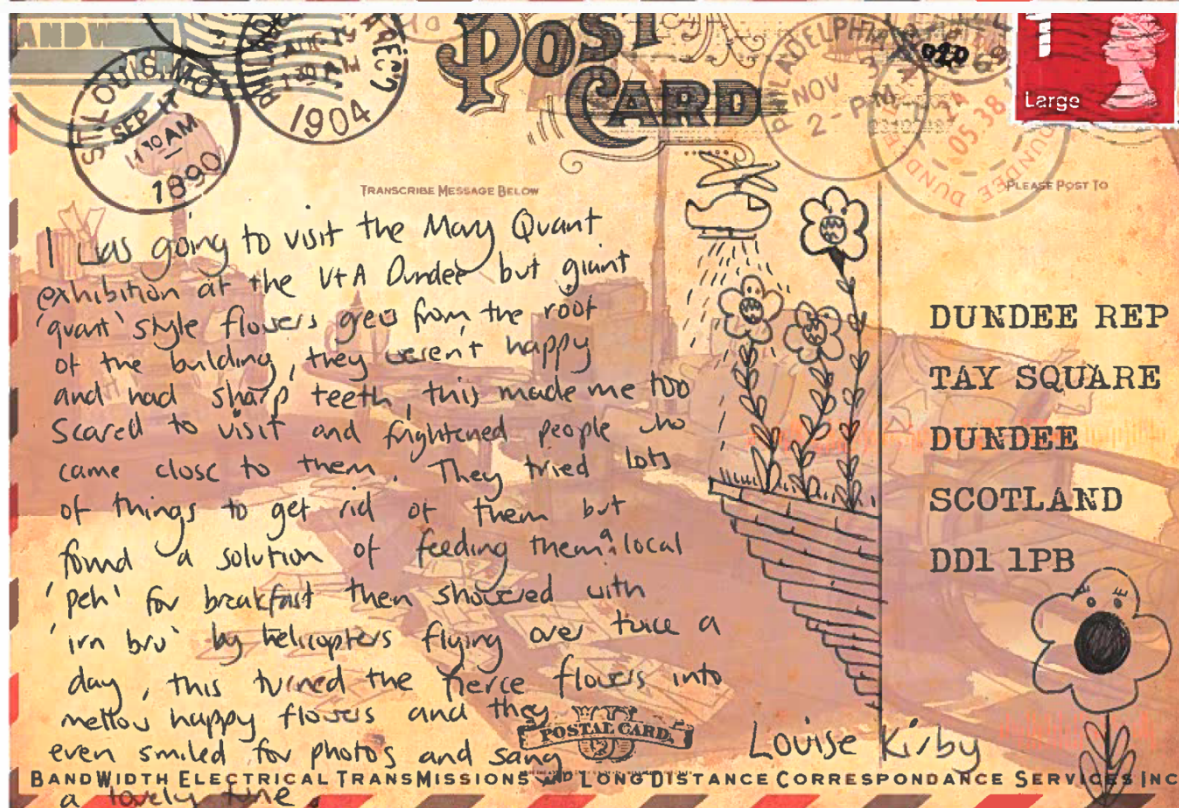 POST
CARD
ST. LOUIS, MO.
SEP 17
11 30 AM
1890
AUG 19
1 30 AM
1904
PHILADELPHIA
NOV
2 - PM
05.38
DUNDEE
Large
TRANSCRIBE MESSAGE BELOW
PLEASE POST TO
I was going to visit the Mary Quant
exhibition at the V+A Dundee but giant
'quant' style flowers grew from the roof
of the building, they weren't happy
and had sharp teeth, this made me too
scared to visit and frightened people who
came close to them. They tried lots
of things to get rid of them but
found a solution of feeding them a local
'peh' for breakfast then showered with
'irn bru' by helicopters flying over twice a
day, this turned the fierce flowers into
mellow happy flowers and they
even smiled for photos and sang
a lovely tune.
DUNDEE REP
TAY SQUARE
DUNDEE
SCOTLAND
DD1 1PB
Louise Kirby
POSTAL CARD.
BANDWIDTH ELECTRICAL TRANSMISSIONS AND LONG DISTANCE CORRESPONDANCE SERVICES INC